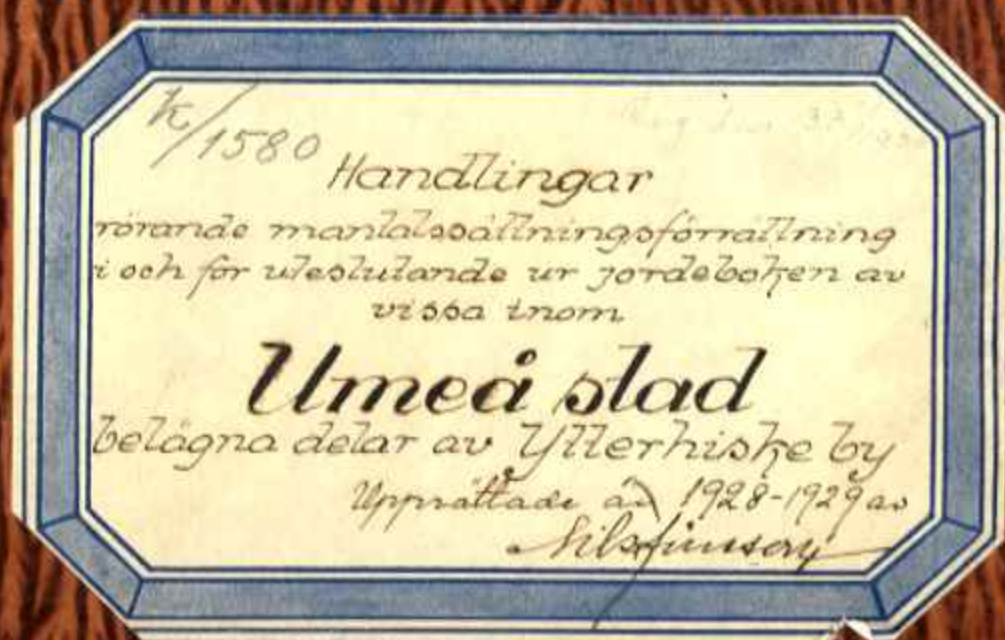 K/1580
Handlingar
rörande mantalssättningsförrättning
i och för uteslutande ur jordeboken av
vissa inom
Umeå stad
belägna delar av Ytterhiske by
Upprättade år 1928-1929 av